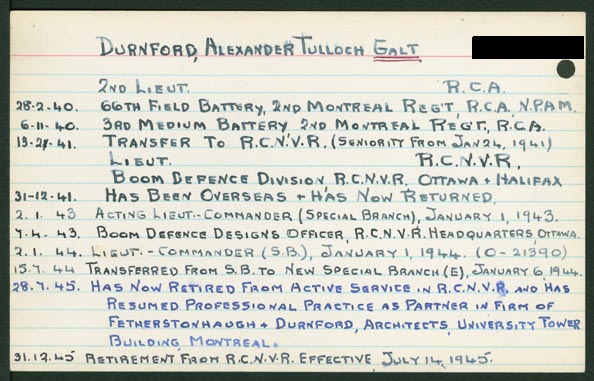 DURNFORD, ALEXANDER TULLOCH GALT
2ND LIEUT. R.C.A.
28-2-40. 66TH FIELD BATTERY, 2ND MONTREAL REG'T, R.C.A. N.P.A.M.
6-11-40. 3RD MEDIUM BATTERY 2ND MONTREAL REG'T, R.C.A.
TRANSFER TO R.C.N.V.R. (SENIORITY FROM JAN 24, 1941)
LIEUT. R.C.N.V.R.
BOOM DEFENCE DIVISION R.C.N.V.R. OTTAWA + HALIFAX
31-12-41. HAS BEEN OVERSEAS + HAS NOW RETURNED.
2.1.43 ACTING LIEUT.-COMMANDER (SPECIAL BRANCH), JANUARY 1, 1943.
7.4.43. BOOM DEFENCE DESIGNS OFFICER, R.C.N.V.R. HEADQUARTERS, OTTAWA.
2.1.44. LIEUT.-COMMANDER (S.B.), JANUARY 1, 1944. (O-21390)
15.7.44 TRANSFERRED FROM S.B. TO NEW SPECIAL BRANCH (E), JANUARY 6, 1944.
28.7.45. HAS NOW RETIRED FROM ACTIVE SERVICE IN R.C.N.V.R. AND HAS
RESUMED PROFESSIONAL PRACTICE AS PARTNER IN FIRM OF
FETHERSTONHAUGH + DURNFORD, ARCHITECTS, UNIVERSITY TOWER
BUILDING, MONTREAL.
31.12.45 RETIREMENT FROM R.C.N.V.R. EFFECTIVE JULY 14, 1945.